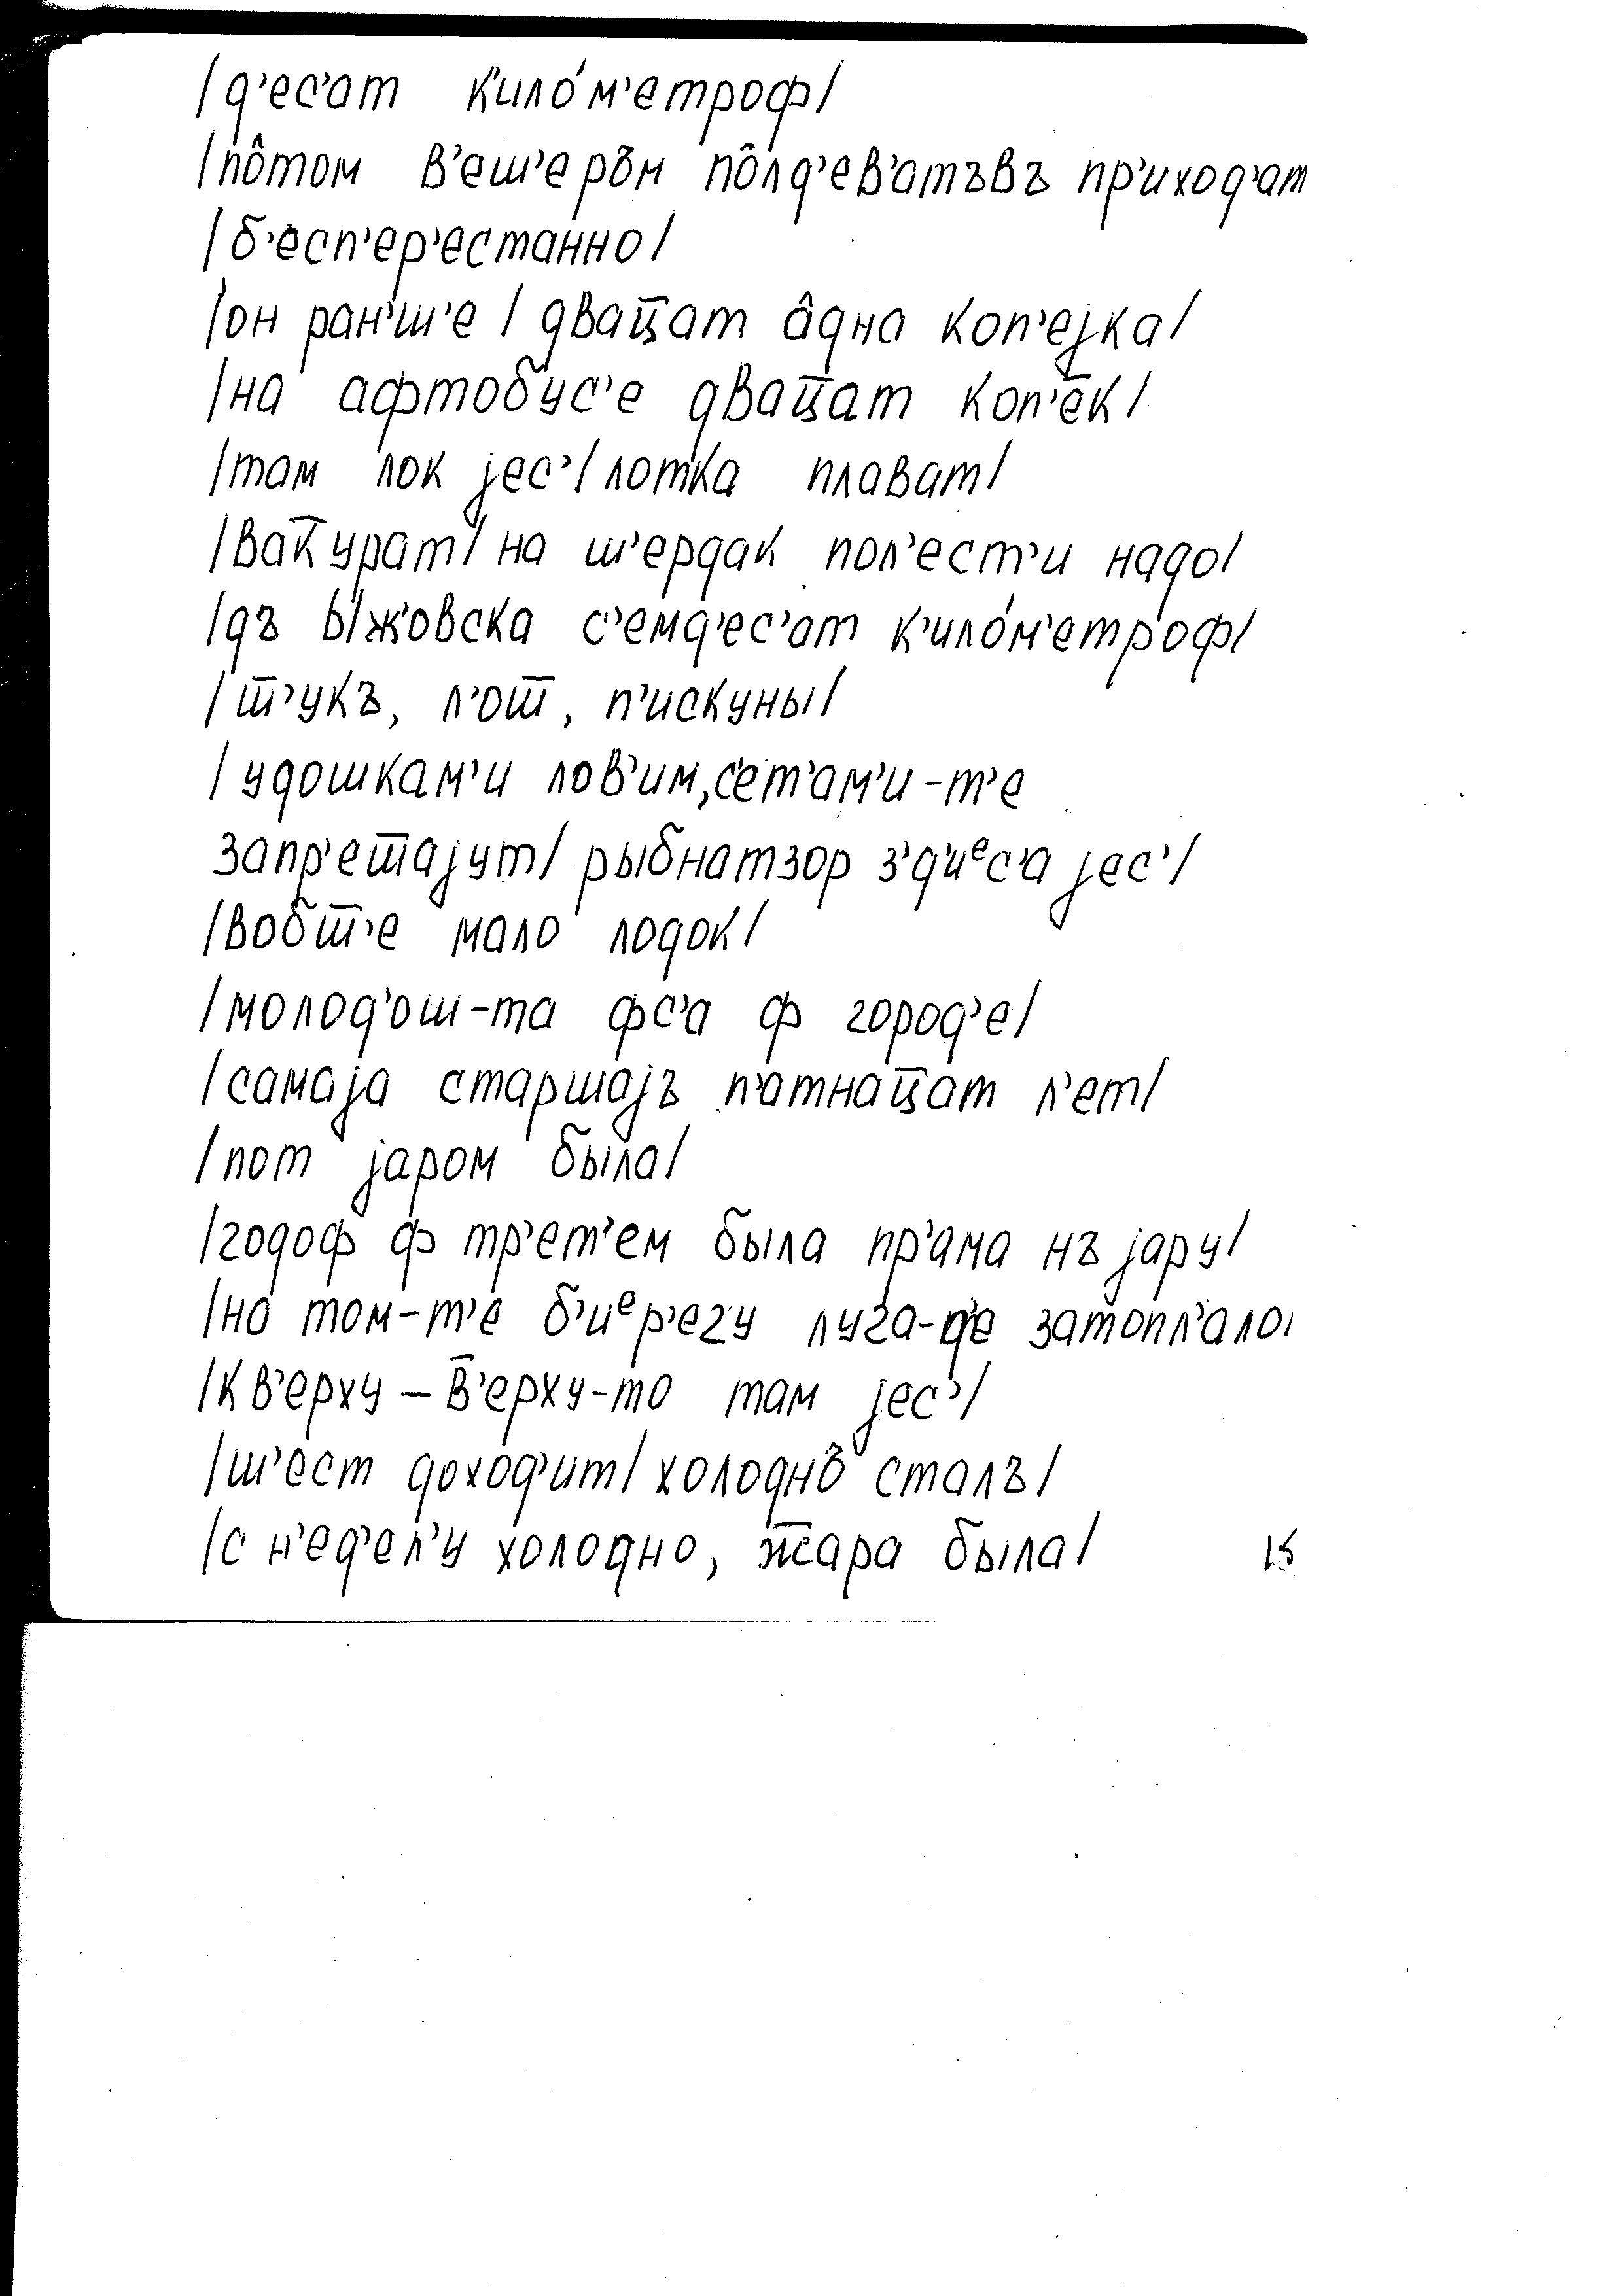 /д’ес’ат к’ило́м’етроф/
/по̂том в’еш’еръ̂м по̂лд’ев’атъвъ пр’иход’ат
/б’есп’ер’естанно/
/он ран’ш’е / двац̅ат а̂дна коп’ејка/
/на афтобус’е двац̅ат коп’е̅к/
/там лок јес’/ лотка плават/
/вак̅урат/ на ш’ердак пол’ест’и надо/
/дъ Ыжовска с’емд’ес’ат к’ило́м’етроф/
/ш̅’укъ, л’ош̅, п’искуны/
/удошкам’и лов’им, с’ет’ам’и-т’е
запр’еш̅ајут/ рыбнатзор з’д’иᵉс’а јес’/
/вобш̅’е мало лодок/
/молод’ош-та фс’а ф город’е/
/самаја старшајъ п’атнац̅ат л’ет/
/пот јаром была/
/годоф ф тр’ет’ем была пр’ама нъ јару/
/на том-т’е б’иᵉр’егу луга-д’е затопл’ало/
/кв’ерху – в̅’ерху-то там јес’/
/ш’ест доход’ит/ холоднъ̂ сталъ/
/с н’ед’ел’у холодно, ж̅ара была/
15